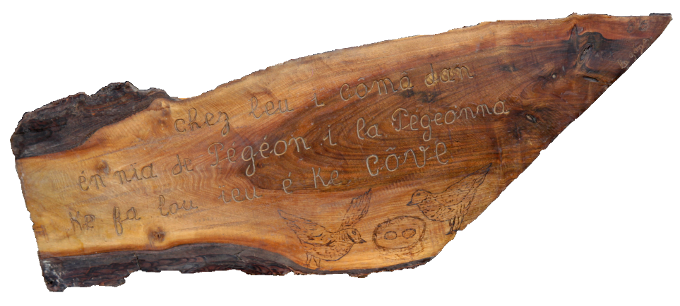 chez leu i côma dan
én nia de Pégéon i la Pégeonna
Ke fa lou ieu é Ke CÔVE